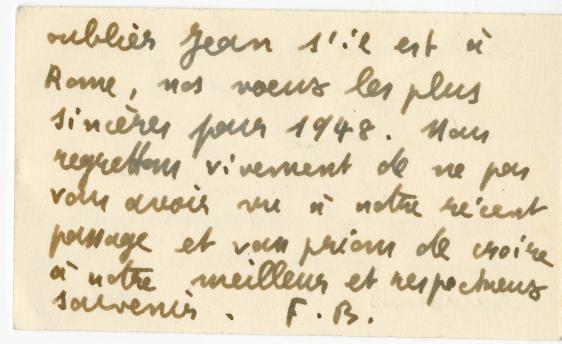 oublier Jean s'il est à
Rome, nos voeux les plus
sincères pour 1948. Nous
regrettons vivement de ne pas
vous avoir vu à notre récent
passage et vous prions de croire
à notre meilleur et respectueux
souvenir. F. B.